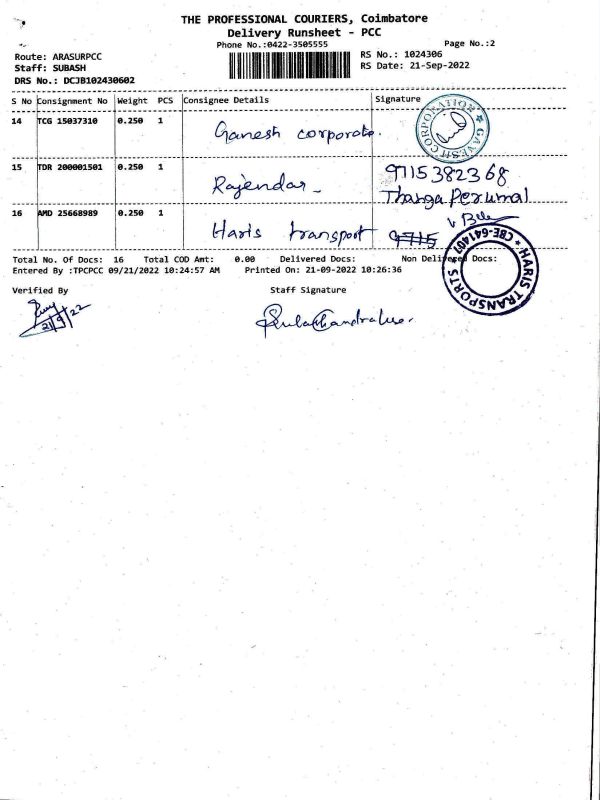 THE PROFESSIONAL COURIERS, Coimbatore
Delivery Runsheet - PCC
Phone No.:0422-3505555 Page No.:2
Route: ARASURPCC RS No.: 1024306
Staff: SUBASH RS Date: 21-Sep-2022
DRS No.: DCJB102430602
S No Consignment No Weight PCS Consignee Details Signature
14 TCG 15037310 0.250 1 Ganesh corporate. GANESH CORPORATION
15 TDR 200001501 0.250 1 Rajendar 9715382368
Thanga Perumal
16 AMD 25668989 0.250 1 Haris transport 9715
HARIS TRANSPORTS CBE-641407
Total No. Of Docs: 16 Total COD Amt: 0.00 Delivered Docs: Non Delivered Docs:
Entered By :TPCPCC 09/21/2022 10:24:57 AM Printed On: 21-09-2022 10:26:36
Verified By Staff Signature
21/9/22